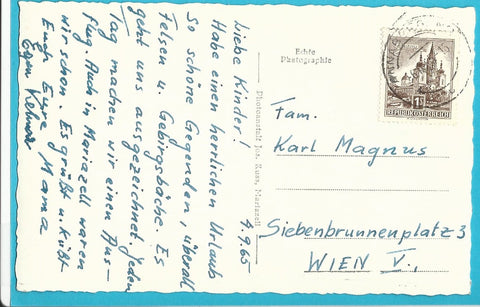 Liebe Kinder! 4.9.65
Habe einen herrlichen Urlaub
So schöne Gegenden, überall
Felsen u. Gebirgsbäche. Es
geht uns ausgezeichnet. Jeden
Tag machen wir einen Aus-
flug. Auch in Mariazell waren
wir schon. Es grüßt u. küßt
Euch Eure Mama
Echte
Photographie
Photoanstalt Jos. Kuss, Mariazell
REPUBLIK ÖSTERREICH
Fam.
Karl Magnus
Siebenbrunnenplatz 3
WIEN V.,